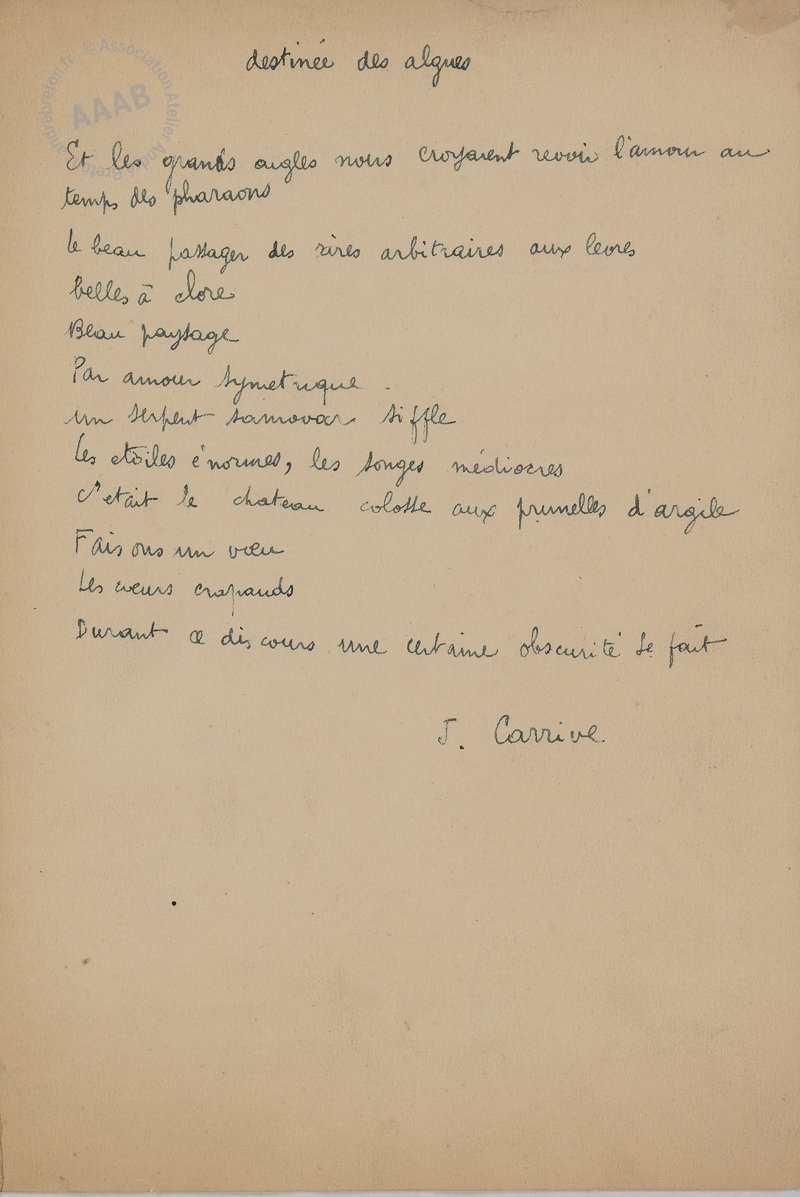 © Association Atelier André Breton
andrebreton.fr
AAAB
destinée des algues
Et les grands aigles nous croyaient revoir l'amour au
temps des pharaons
le beau passager des rires arbitraires aux levres
belles à clore
Beau paysage
Par amour symetrique.
un serpent samovar siffle
Les etoiles énormes, les songes médiocres
C'etait le chateau colosse aux prunelles d'argile
Faisons un vœu
Les cœurs crapauds
Durant ce discours une certaine obscurité se fait
J. Carrive